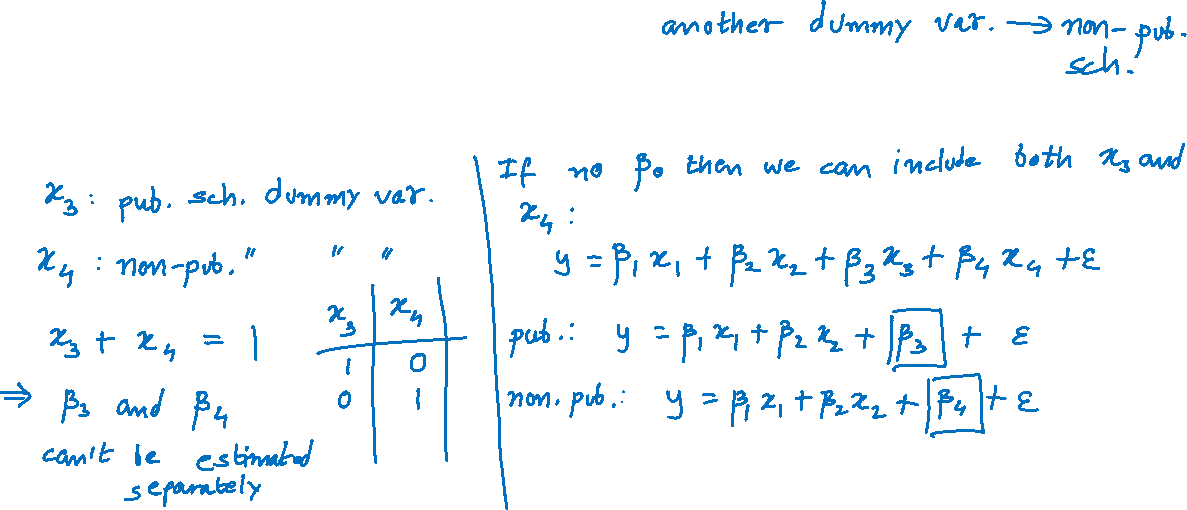 another dummy var. → non-pub.
sch.
x₃ : pub. sch. dummy var.
x₄ : non-pub. " " "
x₃ + x₄ = 1
x₃ x₄
1 0
0 1
⇒ β₃ and β₄
can't be estimated
separately
If no β₀ then we can include both x₃ and
x₄ :
y = β₁ x₁ + β₂ x₂ + β₃ x₃ + β₄ x₄ + ε
pub.: y = β₁ x₁ + β₂ x₂ + β₃ + ε
non. pub.: y = β₁ x₁ + β₂ x₂ + β₄ + ε